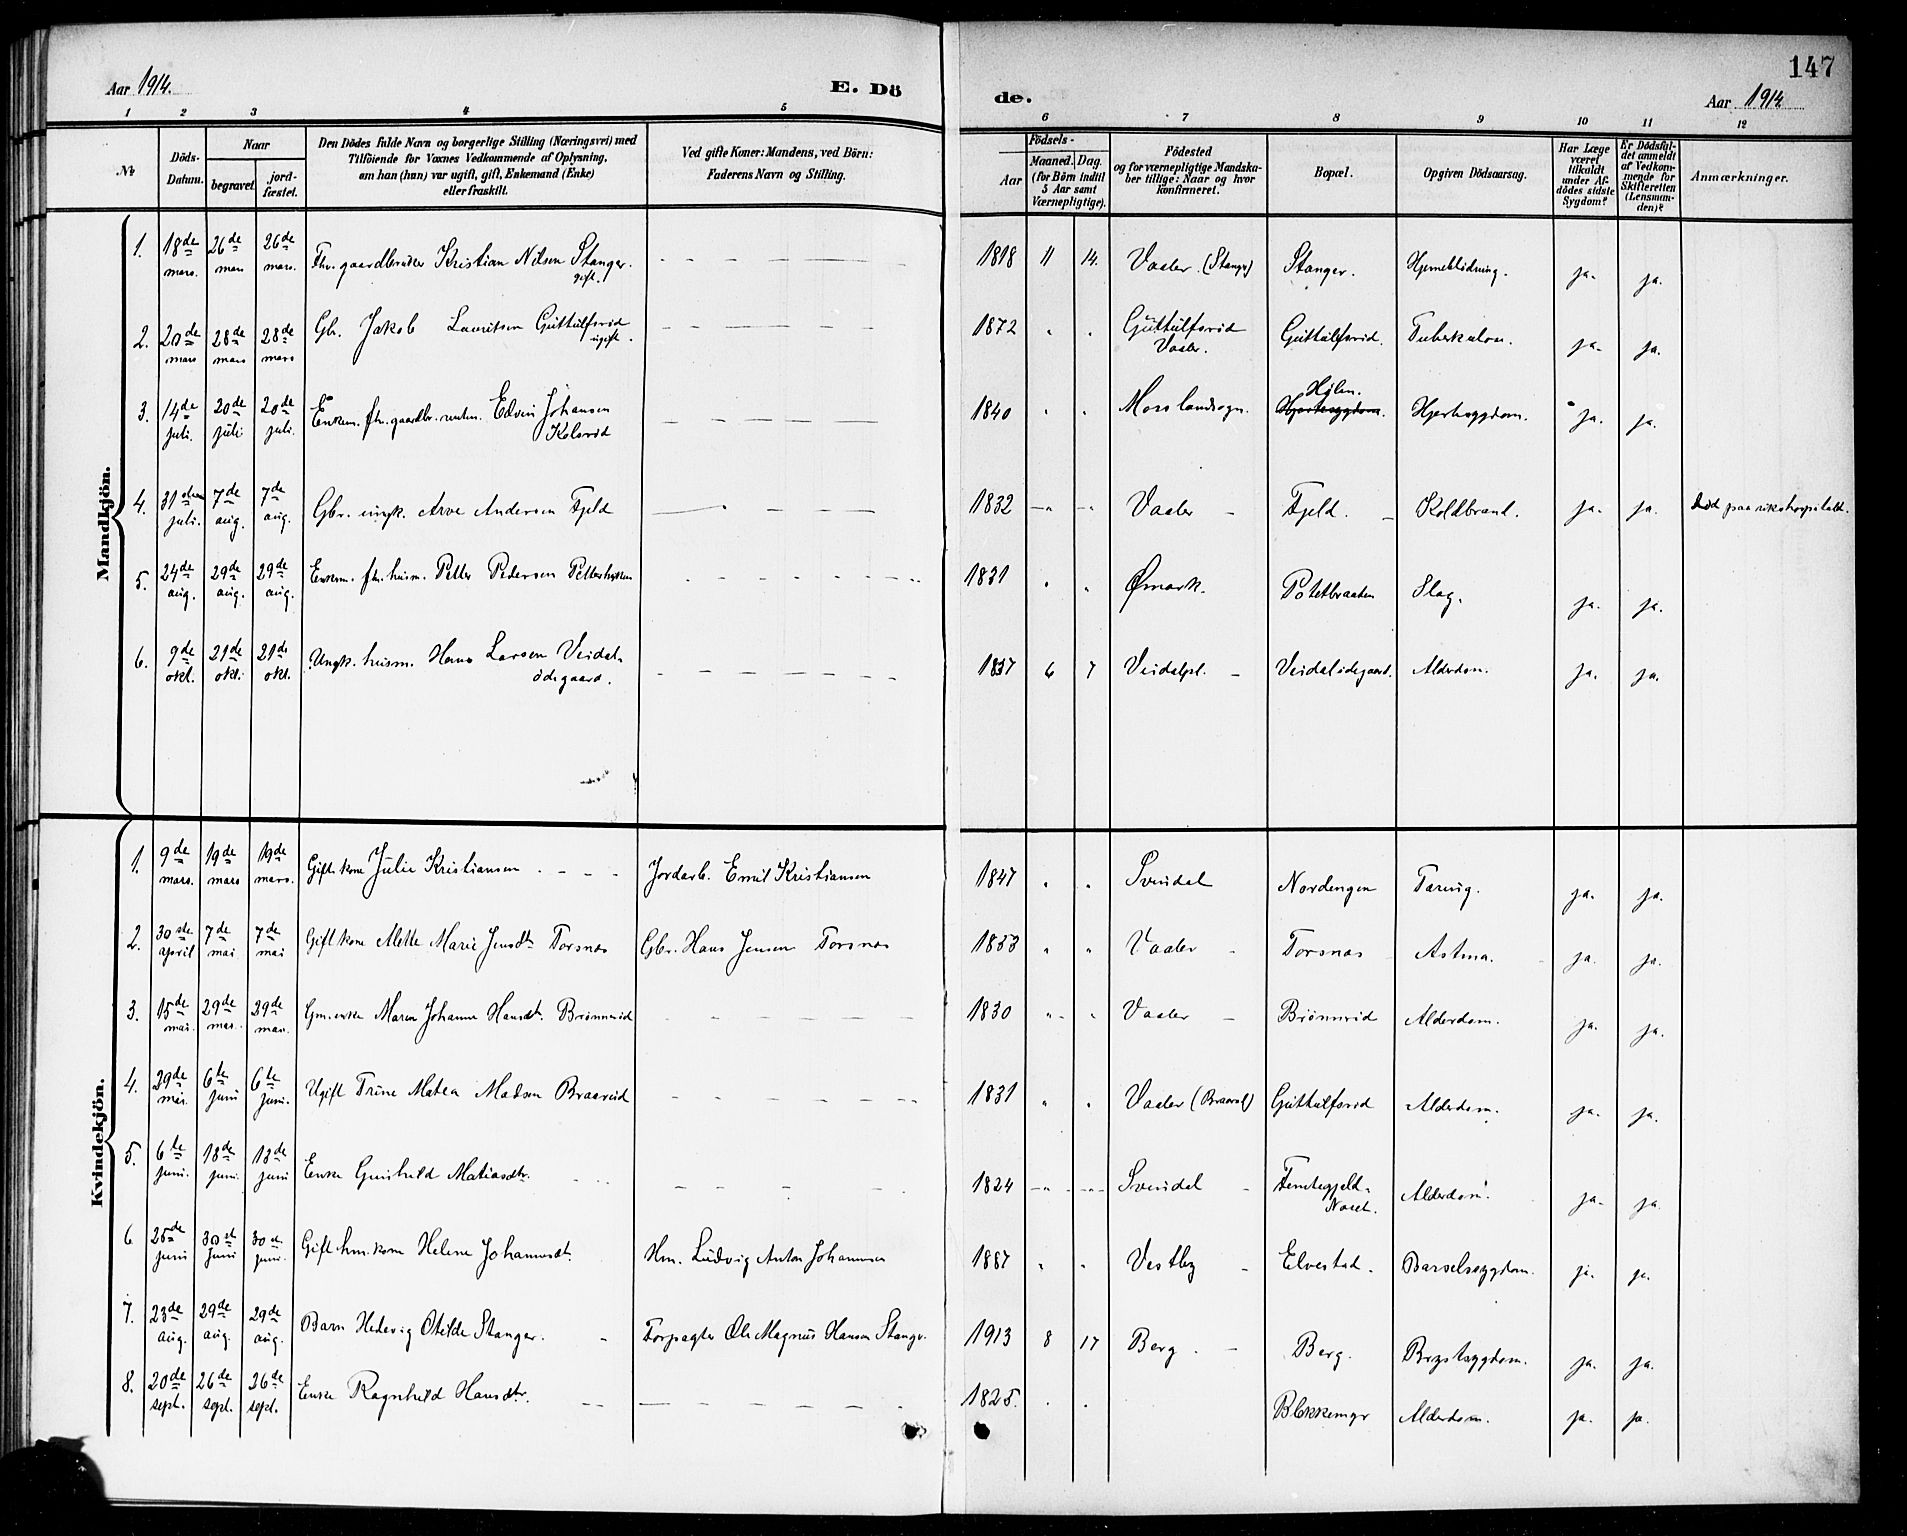 147
Aar 1914.
E. Dö
de.
Aar 1914
1 2 3 4 5 6 7 8 9 10 11 12
№
Döds-
Datum.
Naar
begravet.
jord-
fæstet.
Den Dödes fulde Navn og borgerlige Stilling (Næringsvei) med
Tilföiende for Voxnes Vedkommende af Oplysning,
om han (hun) var ugift, gift, Enkemand (Enke)
eller fraskilt.
Ved gifte Koner: Mandens, ved Börn:
Faderens Navn og Stilling.
Födsels-
Aar
Maaned. Dag.
(for Börn indtil
5 Aar samt
Værnepligtige).
Födested
og for værnepligtige Mandska-
ber tillige: Naar og hvor
konfirmeret.
Bopæl.
Opgiven Dödsaarsag.
Har Læge
været
tilkaldt
under Af-
dödes sidste
Sygdom?
Er Dödsfal-
det anmeldt
af Vedkom-
mende for
Skifteretten
(Lensman-
den)?
Anmærkninger.
Mandkjön.
1. 18de mars. 26de mars 26de mars. Fhv. gaardbruker Kristian Nilsen Stanger. gift. 1818 11 14. Vaaler. (Stanger) Stanger. Hjerneblødning. ja. ja.
2. 20de mars 28de mars 28de mars Gbr. Jakob Lauritsen Guttulfsrid ugift. 1872 " " Guttulfsrid Vaaler. Guttulfsrid. Tuberkulose. ja. ja.
3. 14de juli. 20de juli 20de juli. Enkem. fhv. gaardbr. Edvin Johansen Kolsrid 1840 " " Moss landsogn. Hølen. Hjertesygdom. Hjertesygdom. ja. ja.
4. 31 juli. 7de aug. 7de aug. Gbr. ungk. Arve Andersen Fjeld 1832 " " Vaaler Fjeld. Koldbrand. ja. ja. Död paa rikshospitalet.
5. 24de aug. 29de aug. 29de aug. Enkem. fhv. husm. Petter Pedersen 1831 " " Ømark. Potetbraaten Slag. ja. ja.
6. 9de okt. 21de okt. 21de okt. Ungk. husm. Hans Larsen Veidal-ödegaard. 1837 6 7 Veidalpl. Veidalödegaard. Alderdom. ja. ja.
Kvindekjön.
1. 9de mars. 19de mars 19de mars. Gift kone Julie Kristiansen Jordarb. Emil Kristiansen 1847 " " Svindal Nordengen Tæring. ja. ja.
2. 30ste april 7de mai 7de mai Gift kone Mette Marie Jensdt. Torsnes Gbr. Hans Jensen Torsnes 1833 " " Vaaler Torsnes Astma. ja. ja.
3. 15de mai. 29de mai. 29de mai. Gm. enke Maren Johanne Hansdt. Brönnerid 1830 " " Vaaler Brönnerid Alderdom. ja. ja.
4. 29de mai. 6te juni 6te juni. Ugift Trine Matea Madsen Braarud 1831 " " Vaaler (Braarud) Guttulfsrid Alderdom. ja. ja.
5. 6te juni. 18de juni. 18de juni Enke Gunhild Matiasdtr. 1824 " " Svindal Alderdom. ja. ja.
6 25de juni 30st juni 30st juni. Gift hm. kone Helene Johannesdt. Hm. Ludvig Anton Johannesen 1887 " " Vestby Elvestad. Barselssygdom. ja. ja.
7. 23de aug. 29de aug 29de aug. Barn Hedevig Otilde Stanger. Forpagter Ole Magnus Hansen Stanger. 1913 8 17 Berg. Berg. Brystsygdom. ja. ja.
8. 20de sept. 26de sept. 26de sept. Enke Ragnhild Hansdtr. 1825. " " Blekkemyr Alderdom. ja. ja.